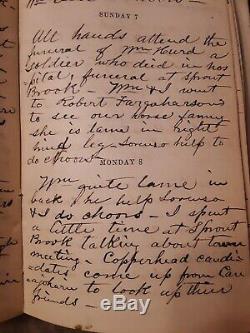 SUNDAY 7
All hands attend the
funeral of Wm Heurd a
soldier who died in hos
pital; funeral at Sprout
Brook — Wm & I went
to Robert Farguharsons
to see our horse fanny
she is lame in right
hind leg. Lorenso help to
do choors
MONDAY 8
Wm quite lame in
back he help Lorenso
& I do choors — I spent
a little time at Sprout
Brook talking about town
meeting — Copperhead candi
dates come up from Can
ajoharie to look up their
friends —
hamp-bay.com